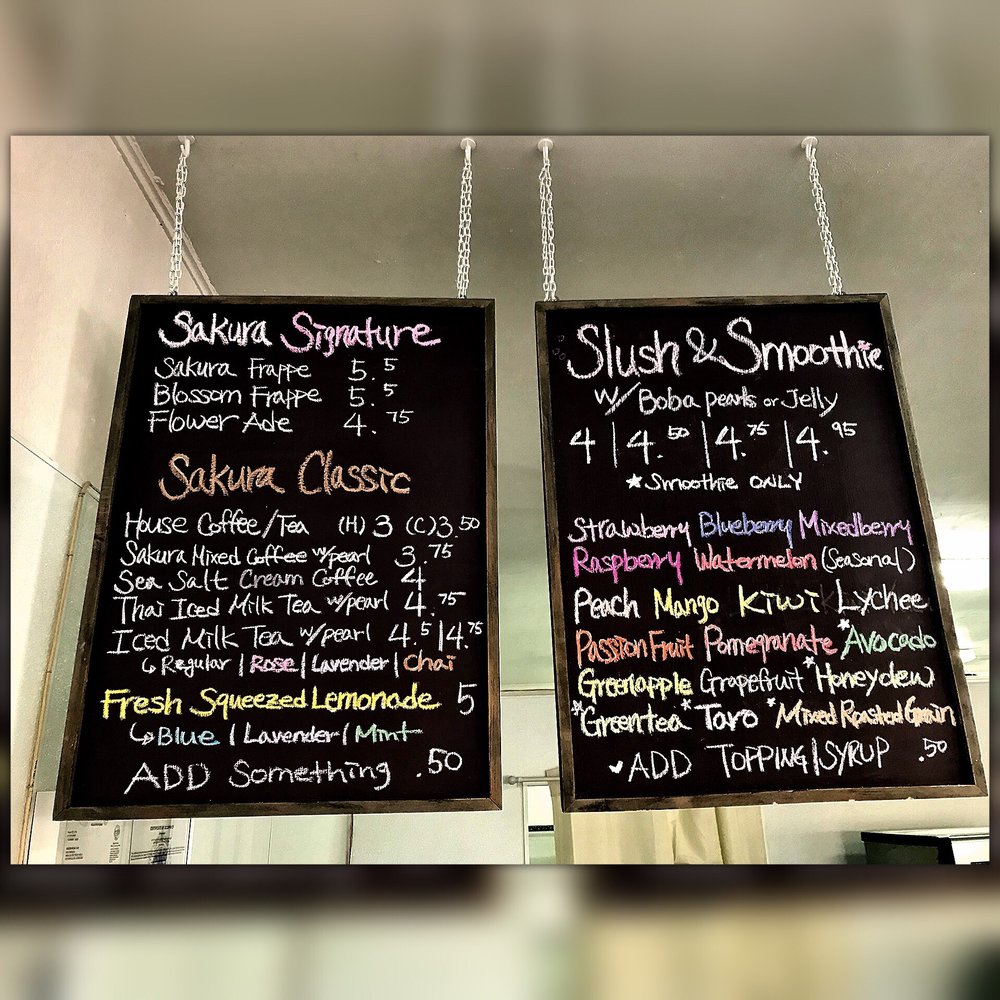 Sakura Signature
Sakura Frappe 5.5
Blossom Frappe 5.5
Flower Ade 4.75
Sakura Classic
House Coffee/Tea (H) 3 (C) 3.50
Sakura Mixed Coffee w/pearl 3.75
Sea Salt Cream Coffee 4
Thai Iced Milk Tea w/pearl 4.75
Iced Milk Tea w/pearl 4.5|4.75
↳Regular | Rose | Lavender | Chai
Fresh Squeezed Lemonade 5
↳Blue | Lavender | Mint
ADD Something .50
Slush & Smoothie
w/ Boba pearls or Jelly
4 | 4.50 | 4.75 | 4.95
★Smoothie ONLY
Strawberry Blueberry Mixedberry
Raspberry Watermelon (Seasonal)
Peach Mango Kiwi Lychee
Passion Fruit Pomegranate *Avocado
Greenapple Grapefruit *Honeydew
*Greentea *Taro *Mixed Roasted Grain
♥ADD TOPPING|SYRUP .50